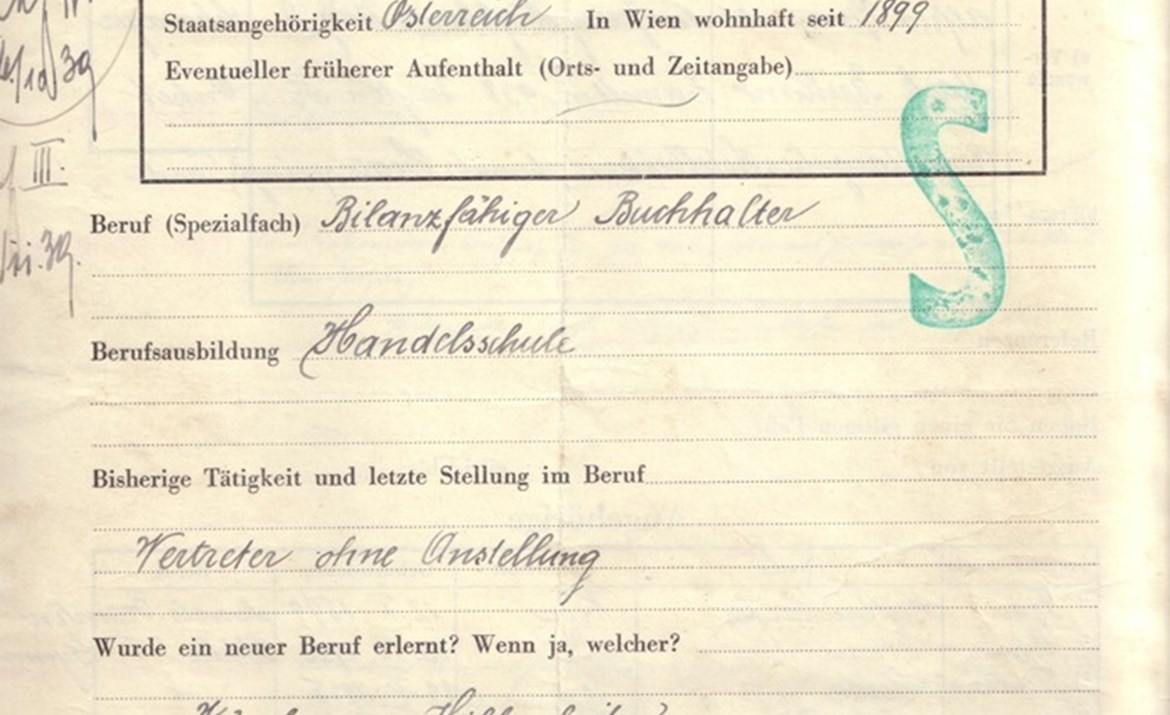 Staatsangehörigkeit Österreich In Wien wohnhaft seit 1899
Eventueller früherer Aufenthalt (Orts- und Zeitangabe)
S
III.
Beruf (Spezialfach) Bilanzfähiger Buchhalter
Berufsausbildung Handelsschule
Bisherige Tätigkeit und letzte Stellung im Beruf
Vertreter ohne Anstellung
Wurde ein neuer Beruf erlernt? Wenn ja, welcher?